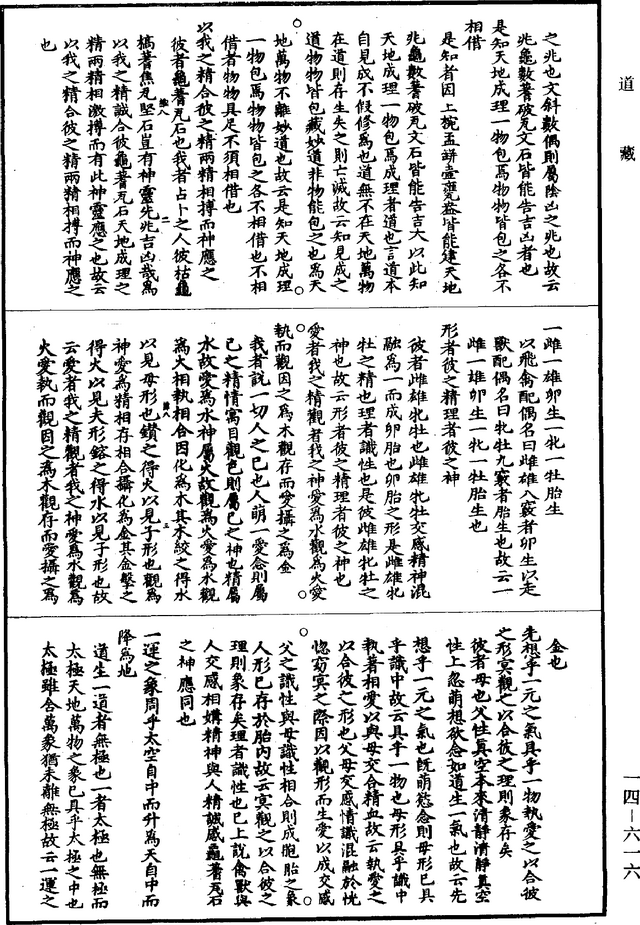 之兆也文斜數偶則屬陰凶之兆也故云
兆龜數蓍破瓦文石皆能告吉凶者也
是知天地成理一物包焉物物皆包之各不
相借
是知者因上椀盂缾壺甕盎皆能建天地
兆龜數蓍破瓦文石皆能告吉凶以此知
天地成理一物包焉成理者道也言道本
自見成不假修爲也道無不在天地萬物
在道則存生失之則亡滅故云知見成之
道物物皆包藏妙道非物能包之也爲天
地萬物不離妙道也故云是知天地成理
一物包焉物物皆包之各不相借也不相
借者物物具足不須相借也
以我之精合彼之精兩精相搏而神應之
彼者龜蓍瓦石也我者占卜之人彼枯龜
槁蓍焦瓦堅石豈有神靈先兆吉凶哉爲
以我之精誠合彼龜蓍瓦石天地成理之
精兩精相激搏而有此神靈應之也故云
以我之精合彼之精兩精相搏而神應之
也
一雌一雄卵生一牝一牡胎生
以飛禽配偶名曰雌雄八竅者卵生以走
獸配偶名曰牝牡九竅者胎生也故云一
雌一雄卵生一牝一牡胎生也
形者彼之精理者彼之神
彼者雌雄牝牡也雌雄牝牡交感精神混
融爲一而成卵胎也卵胎之形是雌雄牝
牡之精也理者識性也是彼雌雄牝牡之
神也故云形者彼之精理者彼之神也
愛者我之精觀者我之神愛爲水觀爲火愛
執而觀因之爲木觀存而愛攝之爲金
我者說一切人之已也人萌一愛念則屬
已之精情寓目觀色則屬已之神也精屬
水故愛爲水神屬火故觀爲火愛爲水觀
爲火相執相合因化爲木其木絞之得水
以見母形也鑽之得火以見子形也觀爲
神愛爲精相存相合攝化爲金其金擊之
得火以見夫形鎔之得水以見子形也故
云愛者我之精觀者我之神愛爲水觀爲
火愛執而觀因之爲木觀存而愛攝之爲
金也
先想乎一元之氣具乎一物執愛之以合彼
之形冥觀之以合彼之理則象存矣
彼者母也父性眞空本來清靜清靜眞空
性上忽萌想欲念如道生一氣也故云先
想乎一元之氣也旣萌慾念則母形已具
乎識中故云具乎一物也母形具乎識中
執著相愛以與母交合精血故云執愛之
以合彼之形也父母交感情識混融於恍
惚窈冥之際因以觀形而生愛以成交感
父之識性與母識性相合則成胞胎之象
人形已存於胎內故云冥觀之以合彼之
理則象存矣理者識性也已上說禽獸與
人交感相媾精神與人精誠感龜蓍瓦石
之神應同也
一運之象周乎太空自中而升爲天自中而
降爲地
道生一道者無極也一者太極也無極而
太極天地萬物之象已具乎太極之中也
太極雖含萬象猶未離無極故云一運之
道藏
一四—六一六